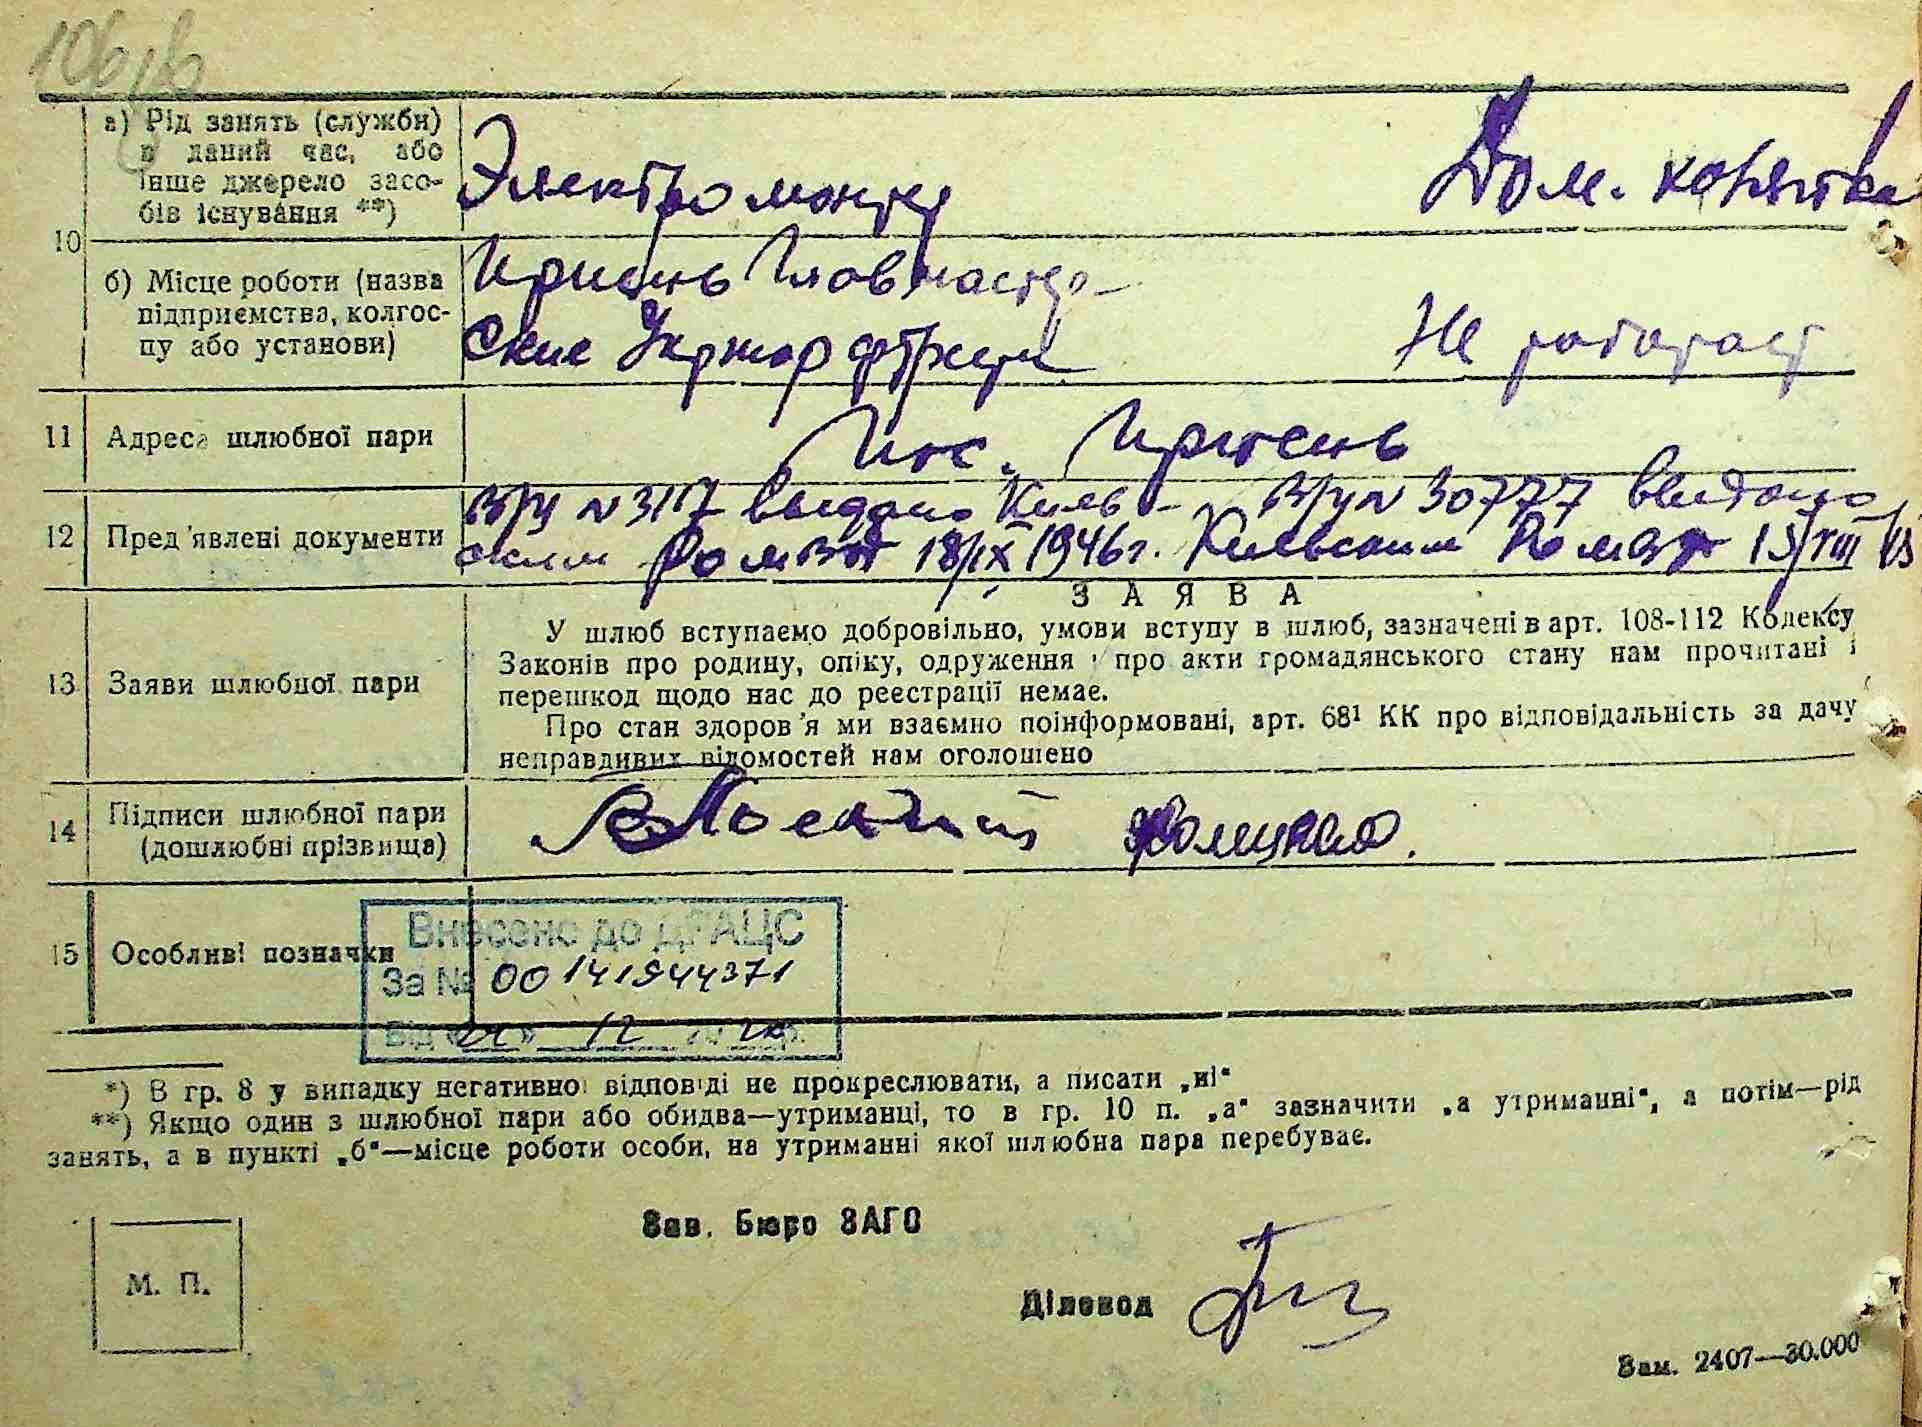 а) Рід занять (служби)
в даний час, або
інше джерело засо-
бів існування **)
Электромонтер
Дом. хозяйка
10
б) Місце роботи (назва
підприємства, колгос-
пу або установи)
Ирпень Главмастер-
ские
Не работает
11 Адреса шлюбної пари
пос. Ирпень
12 Пред'явлені документи
В/у N 3117 выдано Киев-
ским 18/IX 1946г.
В/у N 30777 выдано
Киевским
З А Я В А
13 Заяви шлюбної пари
У шлюб вступаємо добровільно, умови вступу в шлюб, зазначені в арт. 108-112 Кодексу
Законів про родину, опіку, одруження і про акти громадянського стану нам прочитані і
перешкод щодо нас до реєстрації немає.
Про стан здоров'я ми взаємно поінформовані, арт. 68¹ КК про відповідальність за дачу
неправдивих відомостей нам оголошено
14 Підписи шлюбної пари
(дошлюбні прізвища)
15 Особливі позначки
Внесено до ДРАЦС
За № 00141944371
Від « » 12 р.
*) В гр. 8 у випадку негативної відповіді не прокреслювати, а писати „ні“
**) Якщо один з шлюбної пари або обидва—утриманці, то в гр. 10 п. „а“ зазначити „а утриманні“, а потім—рід
занять, а в пункті „б“—місце роботи особи, на утриманні якої шлюбна пара перебуває.
Зав. Бюро ЗАГС
М. П.
Діловод
Зам. 2407—30.000